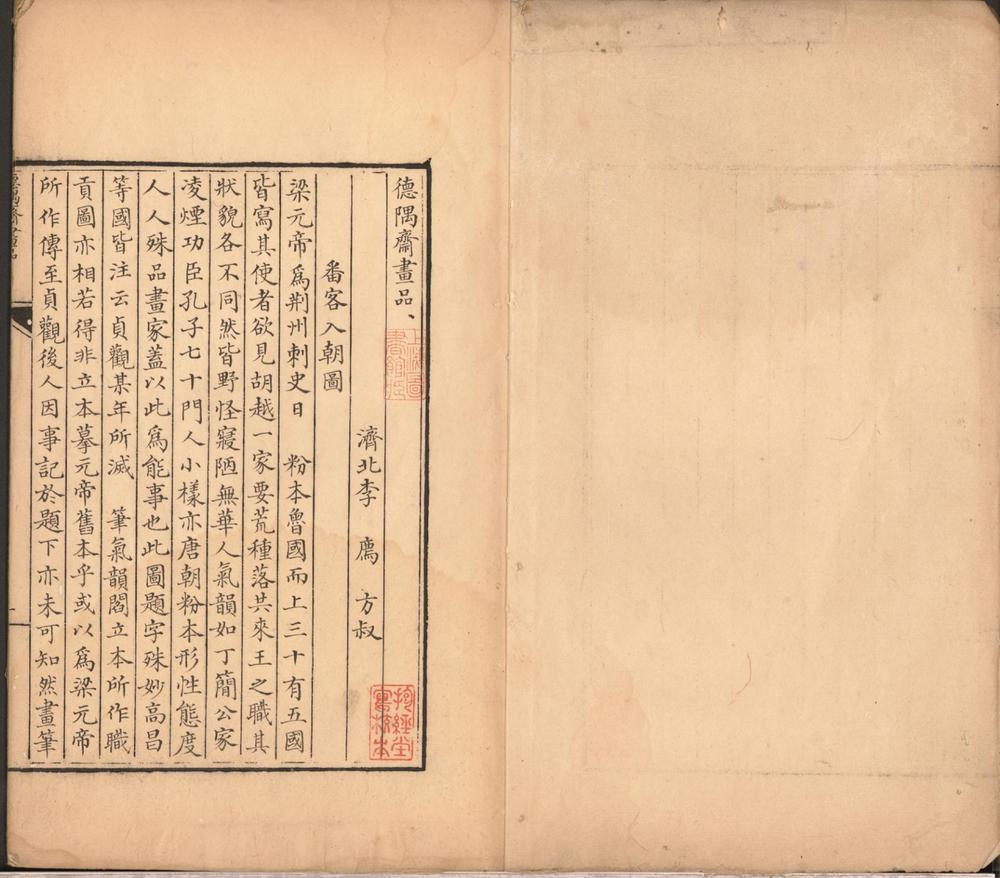 德隅齋畫品、
上海圖書館藏
濟北李 廌 方叔
抱經堂寫校本
番客入朝圖
梁元帝爲荆州刺史日 粉本魯國而上三十有五國
皆寫其使者欲見胡越一家要荒種落共來王之職其
狀貌各不同然皆野怪寢陋無華人氣韻如丁簡公家
凌煙功臣孔子七十門人小樣亦唐朝粉本形性態度
人人殊品畫家蓋以此爲能事也此圖題字殊妙高昌
等國皆注云貞觀某年所滅 筆氣韻閻立本所作職
貢圖亦相若得非立本摹元帝舊本乎或以爲梁元帝
所作傳至貞觀後人因事記於題下亦未可知然畫筆